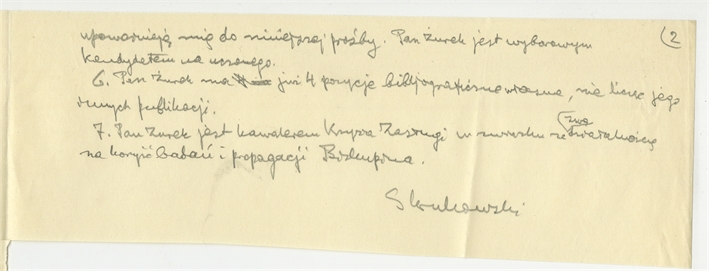 2
upoważniają mię do niniejszej prośby. Pan Żurek jest wyborowym
kandydatem na uczonego.
6. Pan Żurek ma już 4 pozycje bibliograficzne własne, nie licząc jego
innych publikacji.
swą
7. Pan Żurek jest kawalerem Krzyża Zasługi w związku ze działalnością
na korzyść badań i propagacji Biskupina.